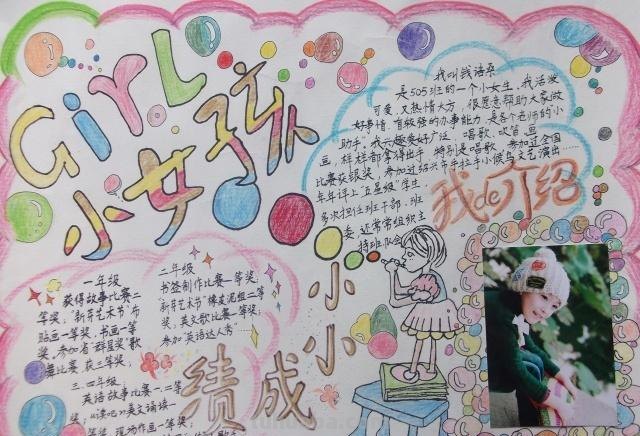 GirL
小女孩
我叫钱语桑
是505班的一个小女生,我活泼
可爱,又热情大方,很愿意帮助大家做
好事情,有较强的办事能力,是各个老师的小
"助手",我兴趣爱好广泛,唱歌、吹笛、画
画,样样都拿得出手,特别是唱歌,参加过全国
比赛获银奖,参加过绍兴市手拉手小候鸟文艺演出……
年年评上"五星级"学生
多次担任班干部,班
委,还常常组织主
持班队会
我de介绍
一年级
获得故事比赛二
等奖,"新芽艺术节"布
贴画一等奖,书画一等
奖,参加省"群星奖"歌
舞比赛 获三等奖;
二年级
书签制作比赛一等奖,
"新芽艺术节"橡皮泥组二等
奖,英文歌比赛一等奖;
参加"英语达人秀"……
三、四年级
英语故事比赛一、二等
奖,"读吧"英文诵读一
等奖,现场作画一等奖;
小小
成绩